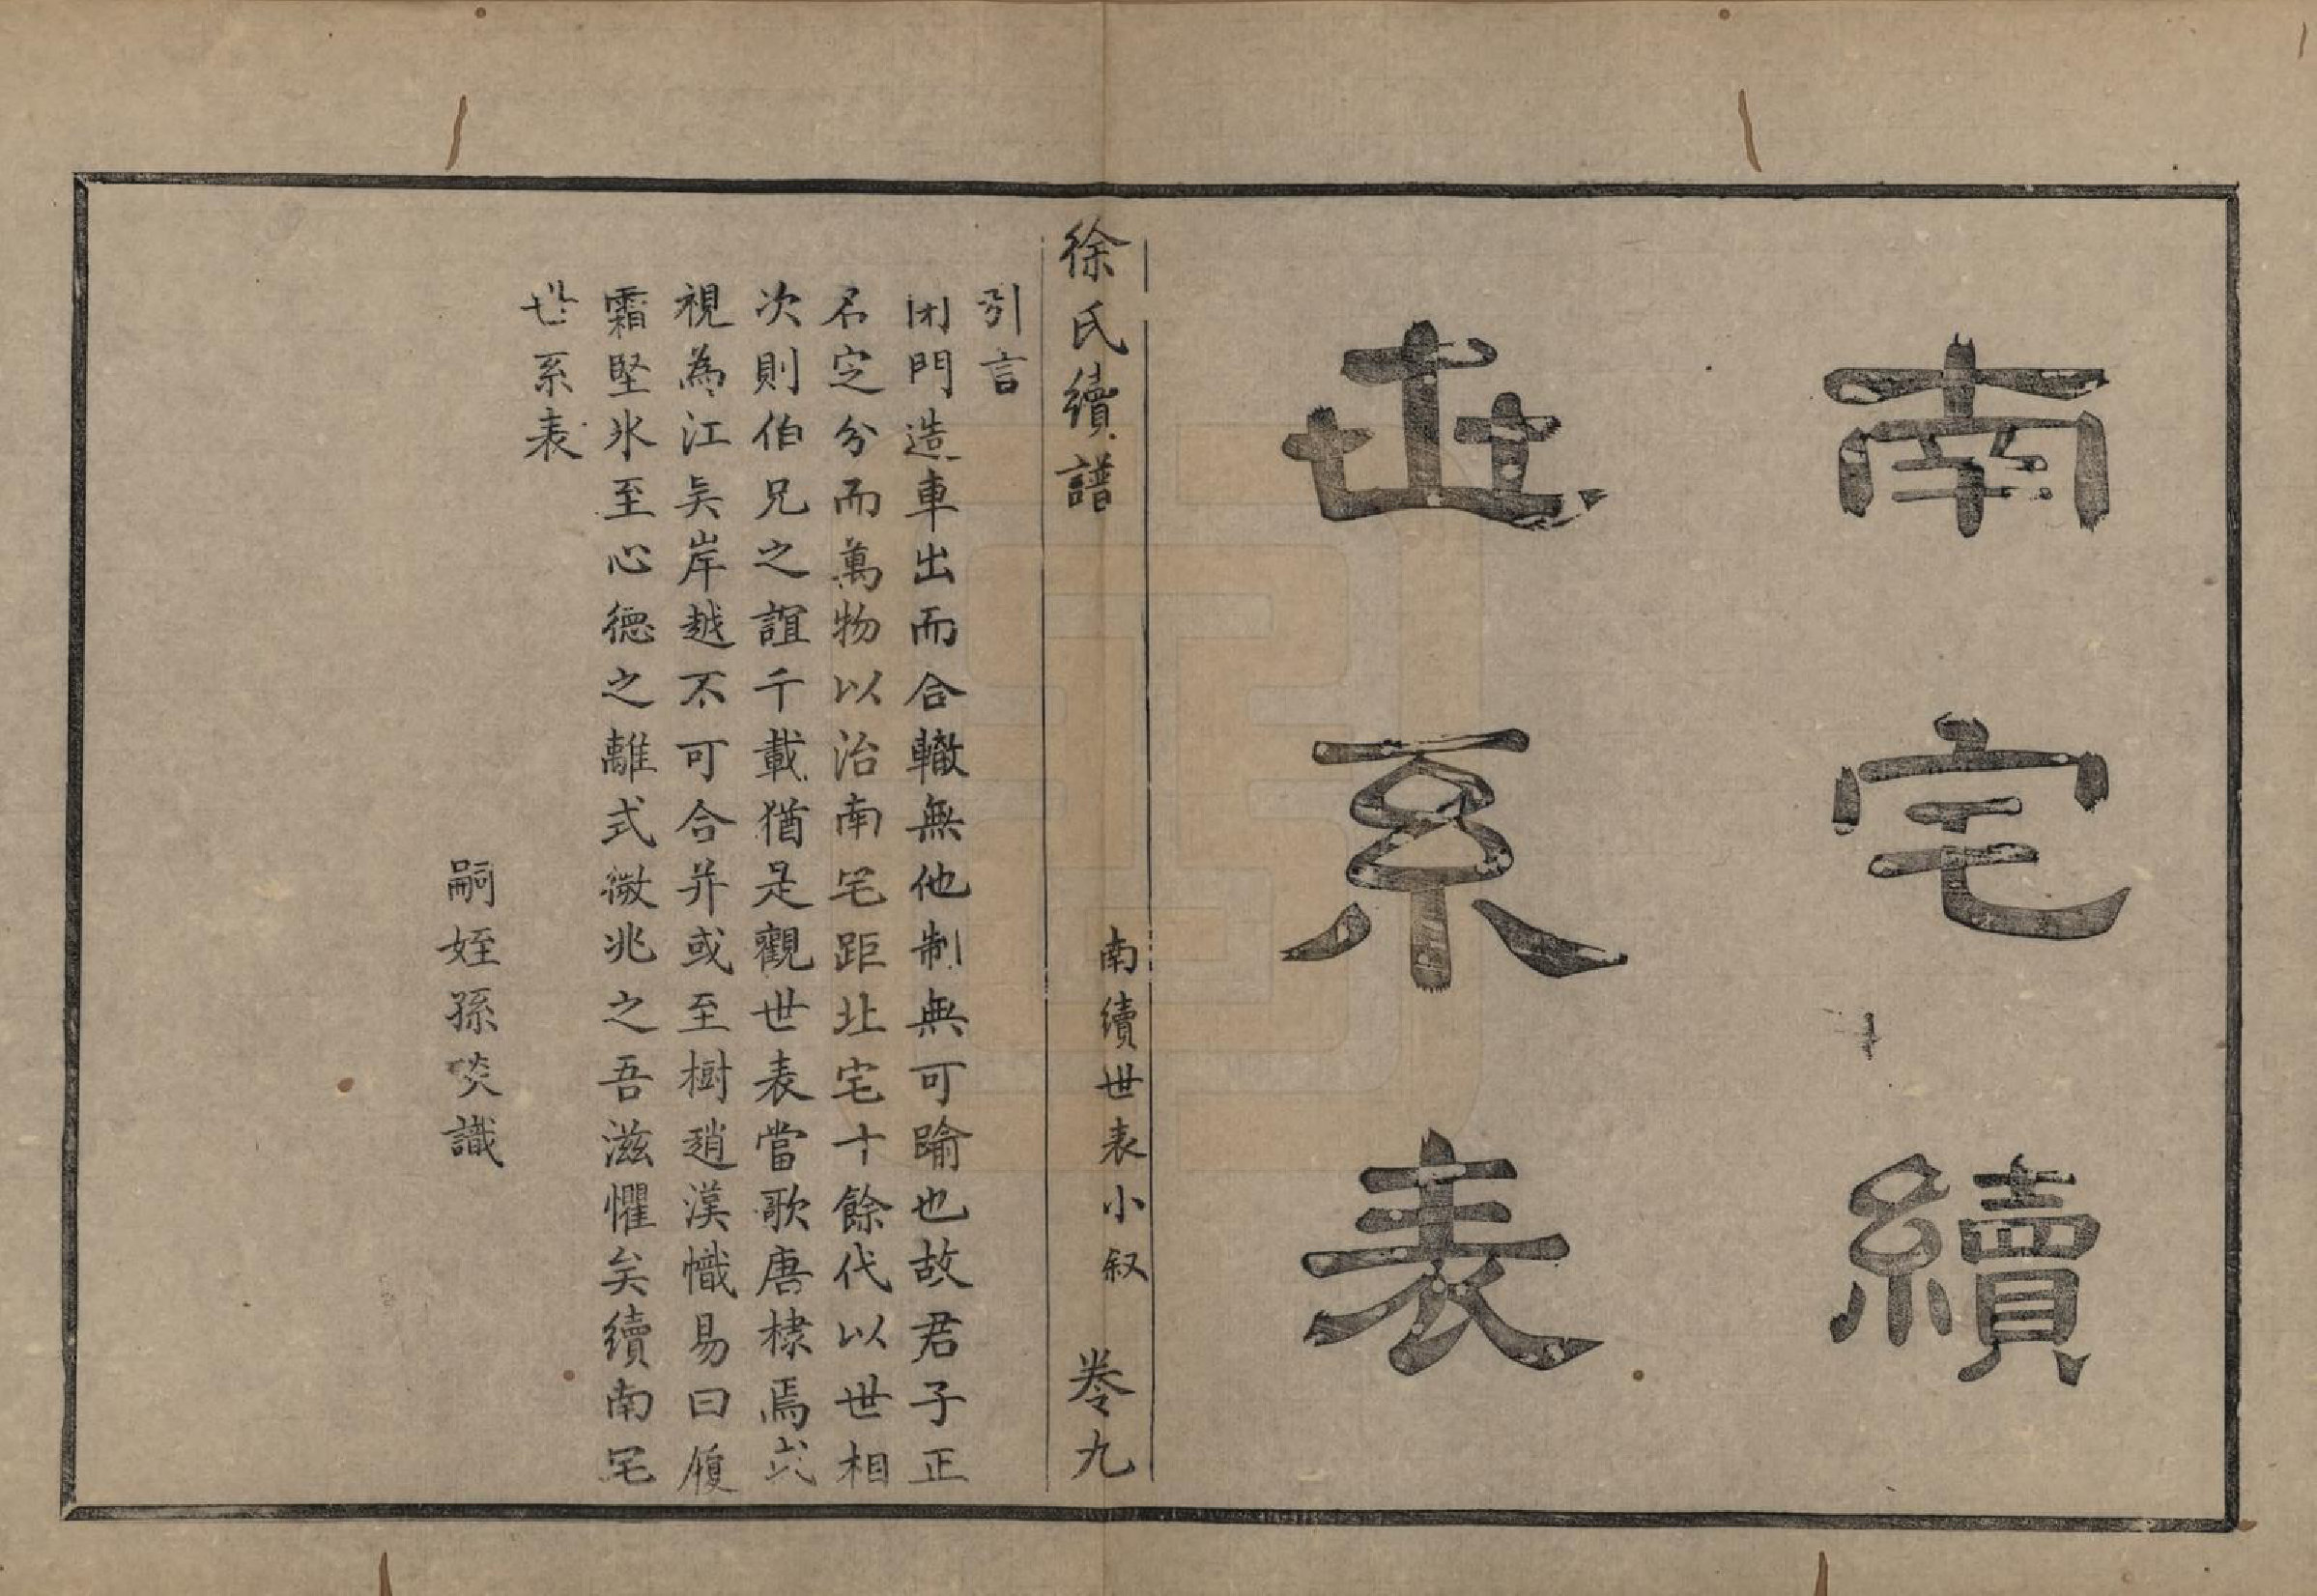 南宅續
世系表
徐氏續譜
南續世表小叙
卷九
引言
閉門造車出而合轍無他制無可踰也故君子正
名定分而萬物以治南宅距北宅十餘代以世相
次則伯兄之誼千載猶是觀世表當歌唐棣焉或
視為江吳岸越不可合并或至樹趙漢幟易曰履
霜堅氷至心德之離式微兆之吾滋懼矣續南宅
世系表
嗣姪孫焂識